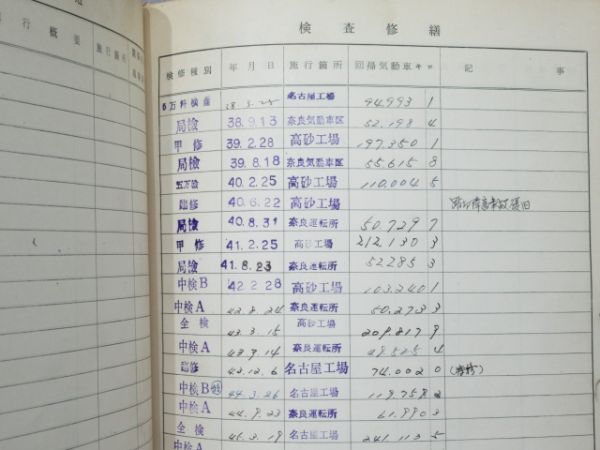 行概要 施行箇所
検査修繕
検修種別 年月日 施行箇所 回帰気動車キロ 記事
6万粁検査 38.3.25 名古屋工場 94.993 1
局検 38.9.13 奈良気動車区 52.198 4
甲修 39.2.28 高砂工場 197.350 1
局検 39.8.18 奈良気動車区 55.615 8
五万検 40.2.25 高砂工場 110.004 5
臨修 40.6.22 高砂工場
局検 40.8.31 奈良運転所 50.729 7
甲修 41.2.25 高砂工場 212.130 3
局検 41.8.23 奈良運転所 52285 3
中検B 42.2.28 高砂工場 103.240 1
中検A 42.8.24 奈良運転所 50.273 3
全検 43.3.15 高砂工場 209.217 9
中検A 43.9.14 奈良運転所 49.525 4
臨修 43.12.6 名古屋工場 74.002 0
中検B 44.3.26 名古屋工場 119.758 2
中検A 44.9.23 奈良運転所 61.990 3
全検 45.3.19 名古屋工場 241.113 5
中検A